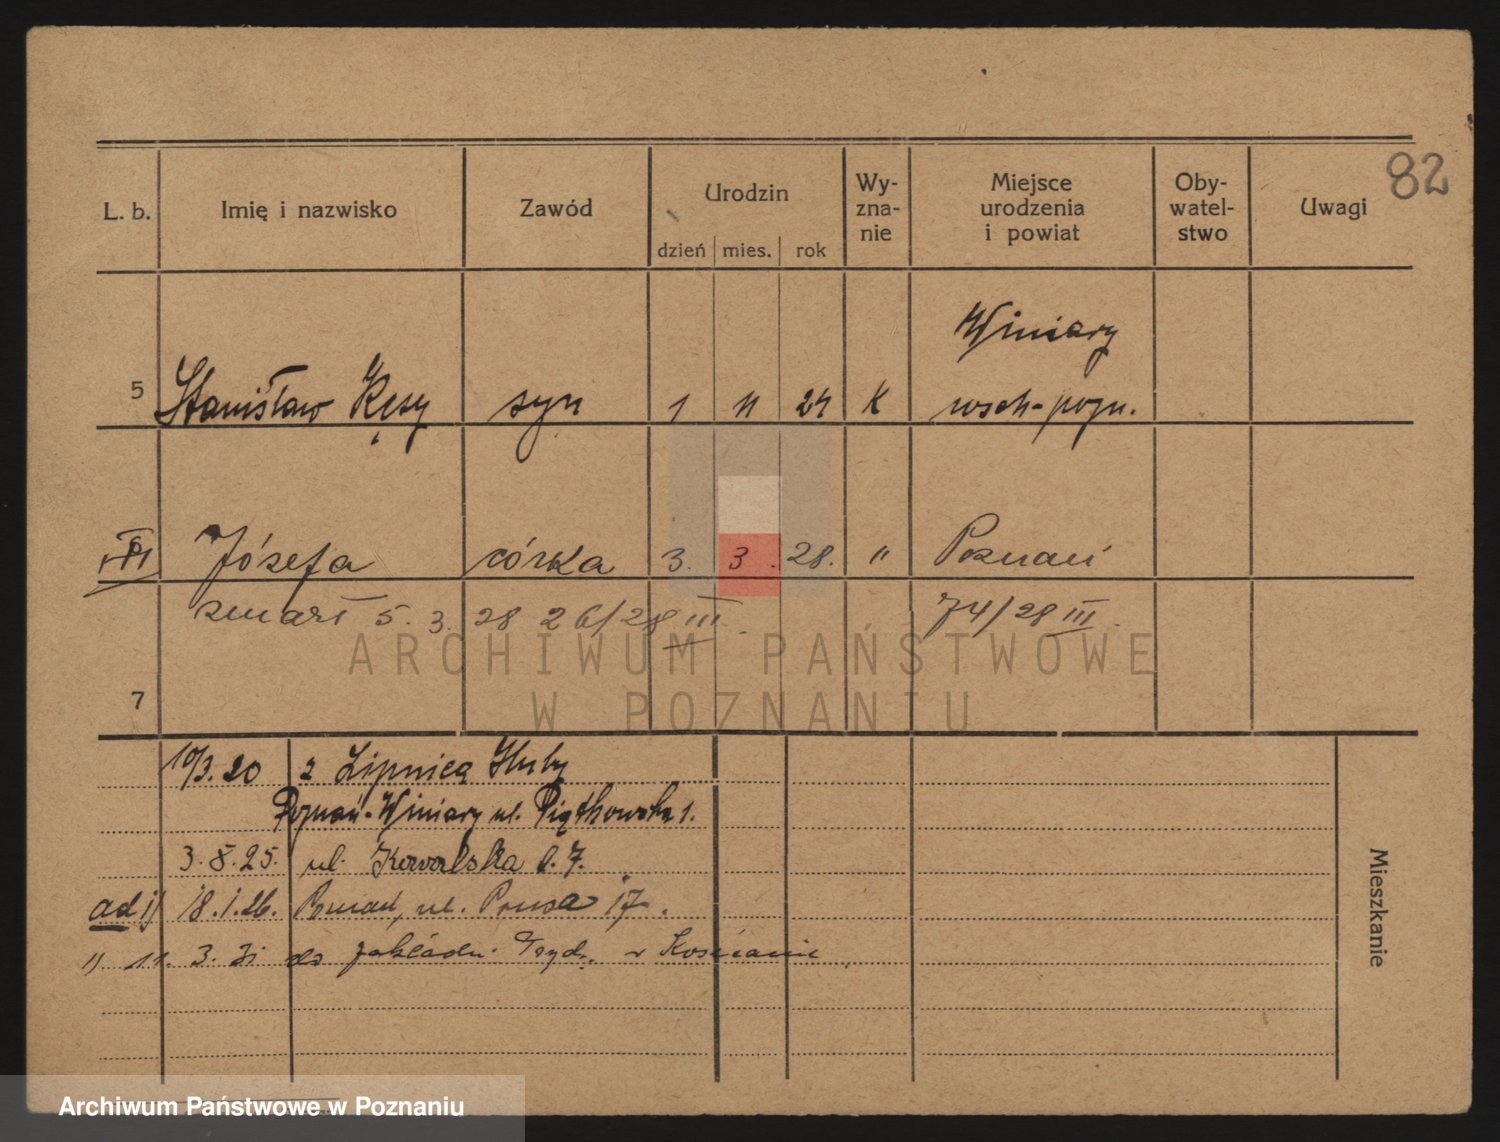 82
L. b. Imię i nazwisko Zawód Urodzin dzień mies. rok Wy-zna-nie Miejsce urodzenia i powiat Oby-watel-stwo Uwagi
Winiary
5 Stanisław Kęsy syn 1 11 24 K wsch-pozn.
Józefa córka 3. 3. 28. " Poznań
zmarł 5. 3. 28 26/28 III. 74/28 III.
ARCHIWUM PAŃSTWOWE
W POZNANIU
7
10/3. 20 z Lipnicą
Poznań-Winiary ul. Piątkowska 1.
3. 8. 25. ul. Kowalska 7.
ad 1) 18. 1. 26. Poznań, ul. Prusa 17.
1) 11. 3. 31 do zakładu w Kościanie
Mieszkanie
Archiwum Państwowe w Poznaniu